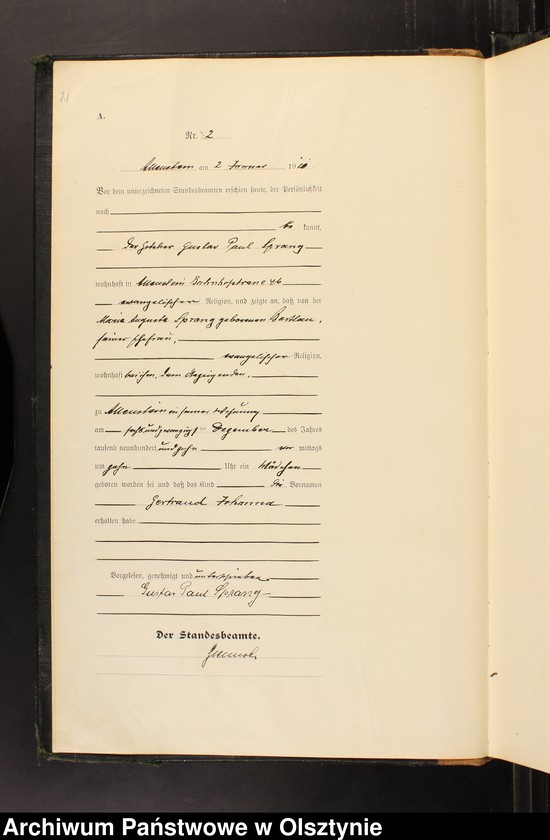 21
A.
Nr. 2
Allenstein am 2 Januar 19
Vor dem unterzeichneten Standesbeamten erschien heute, der Persönlichkeit
nach
be kannt,
der Gustav Paul Sprang
wohnhaft in Allenstein Bahnhofstrasse 46
evangelischer Religion, und zeigte an, daß von der
Maria Auguste Sprang geborenen
seiner Ehefrau,
evangelischer Religion,
wohnhaft bei ihm, dem Anzeigenden.
zu Allenstein in seiner Wohnung
am sechsundzwanzigsten Dezember des Jahres
tausend neunhundert und zehn vor mittags
um zehn Uhr ein Mädchen
geboren worden sei und daß das Kind die Vornamen
Gertraud Johanna
erhalten habe
Vorgelesen, genehmigt und unterschrieben
Gustav Paul Sprang
Der Standesbeamte.
Archiwum Państwowe w Olsztynie